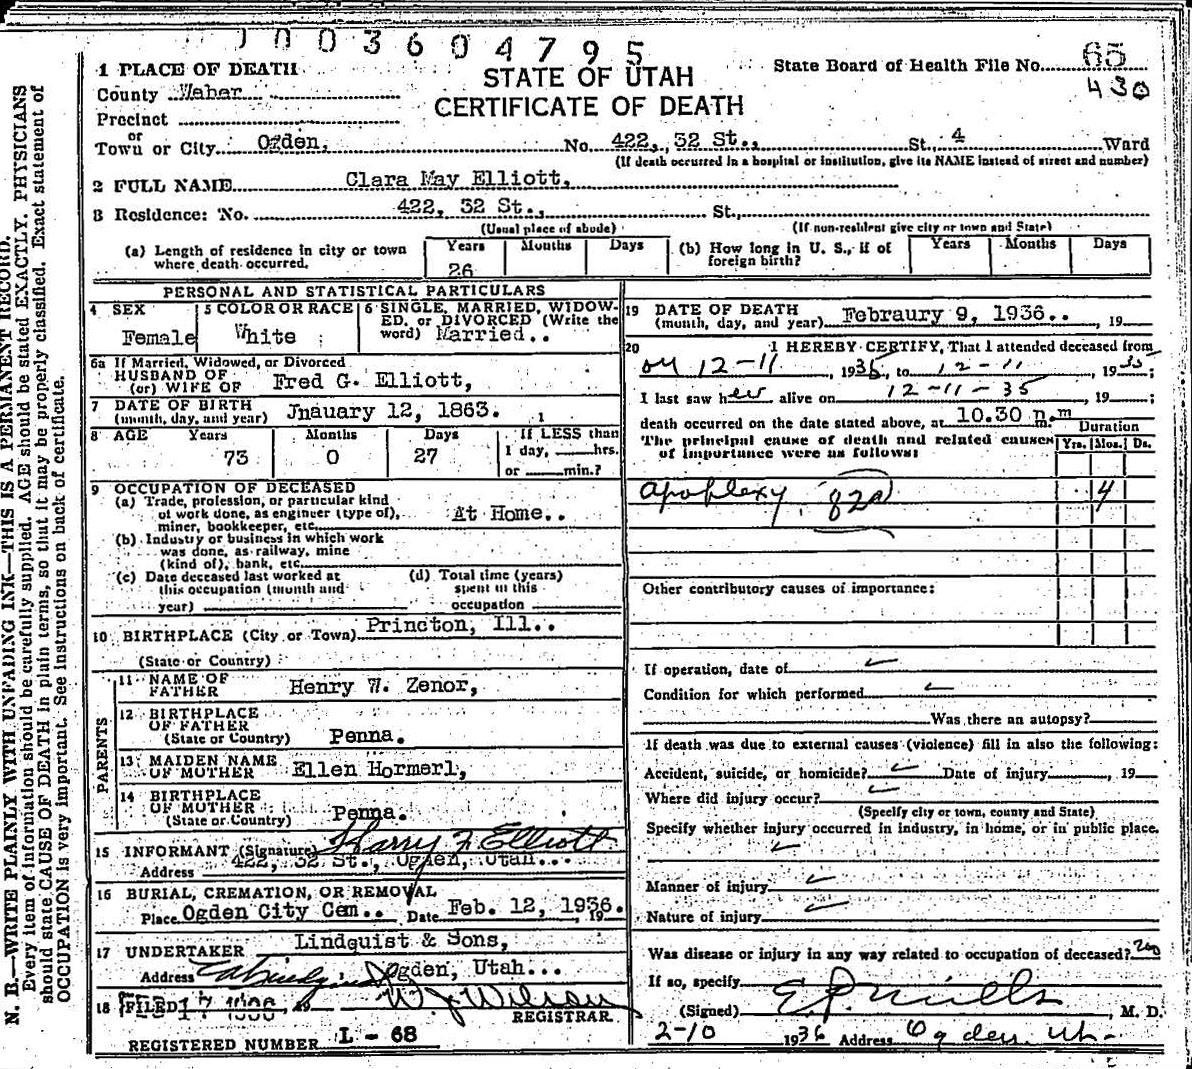 1003604795
1 PLACE OF DEATH
STATE OF UTAH
CERTIFICATE OF DEATH
State Board of Health File No. 65
430
County Weber
Precinct
or
Town or City Ogden, No. 422, 32 St., St., 4 Ward
(If death occurred in a hospital or institution, give its NAME instead of street and number)
2 FULL NAME Clara May Elliott,
3 Residence: No. 422, 32 St., St.,
(Usual place of abode) (If non-resident give city or town and State)
(a) Length of residence in city or town where death occurred. Years 26 Months Days
(b) How long in U. S., if of foreign birth? Years Months Days
PERSONAL AND STATISTICAL PARTICULARS
4 SEX Female
5 COLOR OR RACE White
6 SINGLE, MARRIED, WIDOWED, or DIVORCED (Write the word) Married..
6a If Married, Widowed, or Divorced
HUSBAND OF
(or) WIFE OF Fred G. Elliott,
7 DATE OF BIRTH
(month, day, and year) Jnauary 12, 1863. 1
8 AGE Years 73 Months 0 Days 27 If LESS than 1 day, hrs. or min.?
9 OCCUPATION OF DECEASED
(a) Trade, profession, or particular kind of work done, as engineer (type of), miner, bookkeeper, etc. At Home..
(b) Industry or business in which work was done, as railway, mine (kind of), bank, etc.
(c) Date deceased last worked at this occupation (month and year)
(d) Total time (years) spent in this occupation
10 BIRTHPLACE (City or Town) Princton, Ill..
(State or Country)
PARENTS
11 NAME OF FATHER Henry W. Zenor,
12 BIRTHPLACE OF FATHER (State or Country) Penna.
13 MAIDEN NAME OF MOTHER Ellen Hormerl,
14 BIRTHPLACE OF MOTHER (State or Country) Penna.
15 INFORMANT (Signature) Harry F Elliott
Address 422, 32 St., Ogden, Utah...
16 BURIAL, CREMATION, OR REMOVAL
Place Ogden City Cem.. Date Feb. 12, 1936. 19
17 UNDERTAKER Lindquist & Sons,
Address Ogden, Utah...
18 FILED 17 1936 , 19 W. J. Wilson
REGISTRAR.
REGISTERED NUMBER L - 68
19 DATE OF DEATH
(month, day, and year) Febraury 9, 1936.. , 19
20 I HEREBY CERTIFY, That I attended deceased from
on 12-11, 1935, to 12-11, 1935;
I last saw her alive on 12-11-35, 19 ;
death occurred on the date stated above, at 10.30 p.m m.
The principal cause of death and related causes of importance were as follows:
Duration
Yrs. Mos. Ds.
Apoplexy. 82a 4
Other contributory causes of importance:
If operation, date of
Condition for which performed
Was there an autopsy?
If death was due to external causes (violence) fill in also the following:
Accident, suicide, or homicide? Date of injury , 19
Where did injury occur?
(Specify city or town, county and State)
Specify whether injury occurred in industry, in home, or in public place.
Manner of injury
Nature of injury
Was disease or injury in any way related to occupation of deceased? no
If so, specify
(Signed) E P Mills, M. D.
2-10 1936 Address Ogden. Ut-
N. B.—WRITE PLAINLY WITH UNFADING INK—THIS IS A PERMANENT RECORD.
Every item of information should be carefully supplied. AGE should be stated EXACTLY. PHYSICIANS
should state CAUSE OF DEATH in plain terms, so that it may be properly classified. Exact statement of
OCCUPATION is very important. See instructions on back of certificate.